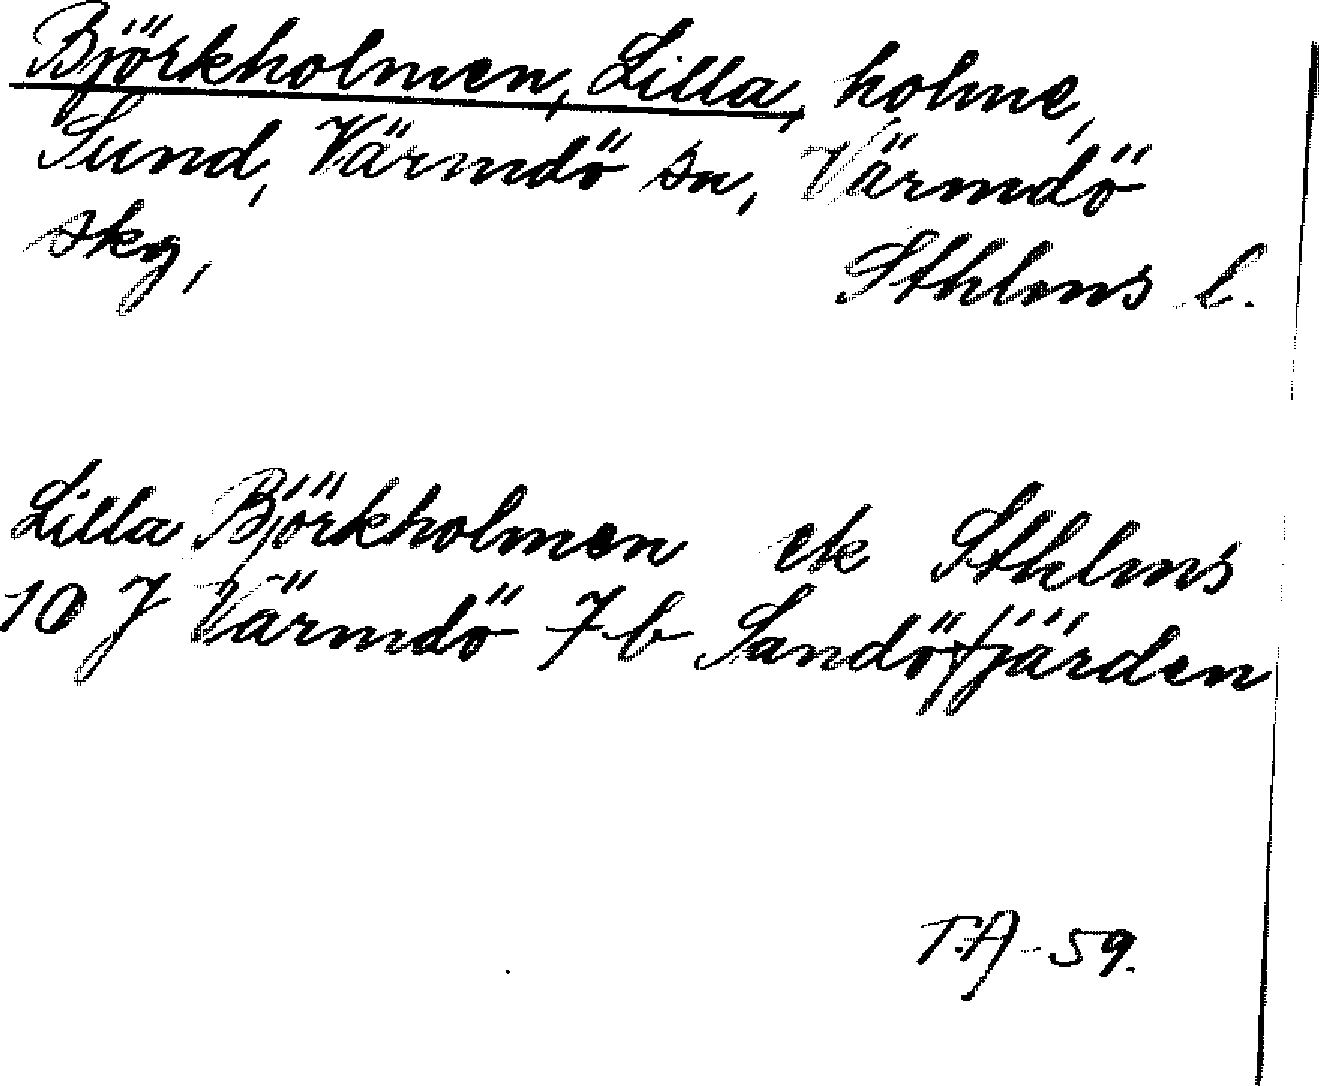 Björkholmen, Lilla, holme,
Sund, Värmdö sn, Värmdö
skg, Sthlms l.
Lilla Björkholmen ek Sthlms
10 J Värmdö 7b Sandöfjärden
T.A-59.